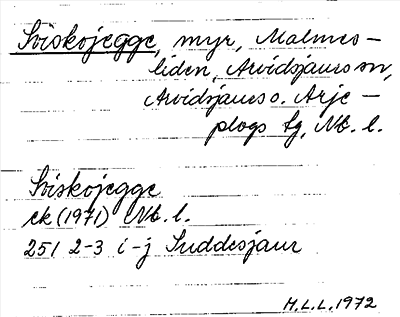 Sviskojegge, myr, Malmes-
liden, Arvidsjaurs sn,
Arvidsjaurs o. Arje-
plogs tg, Nb. l.
Sviskojegge
ek (1971) Nb. l.
251 2-3 i-j Suddesjaur
H.L.L. 1972